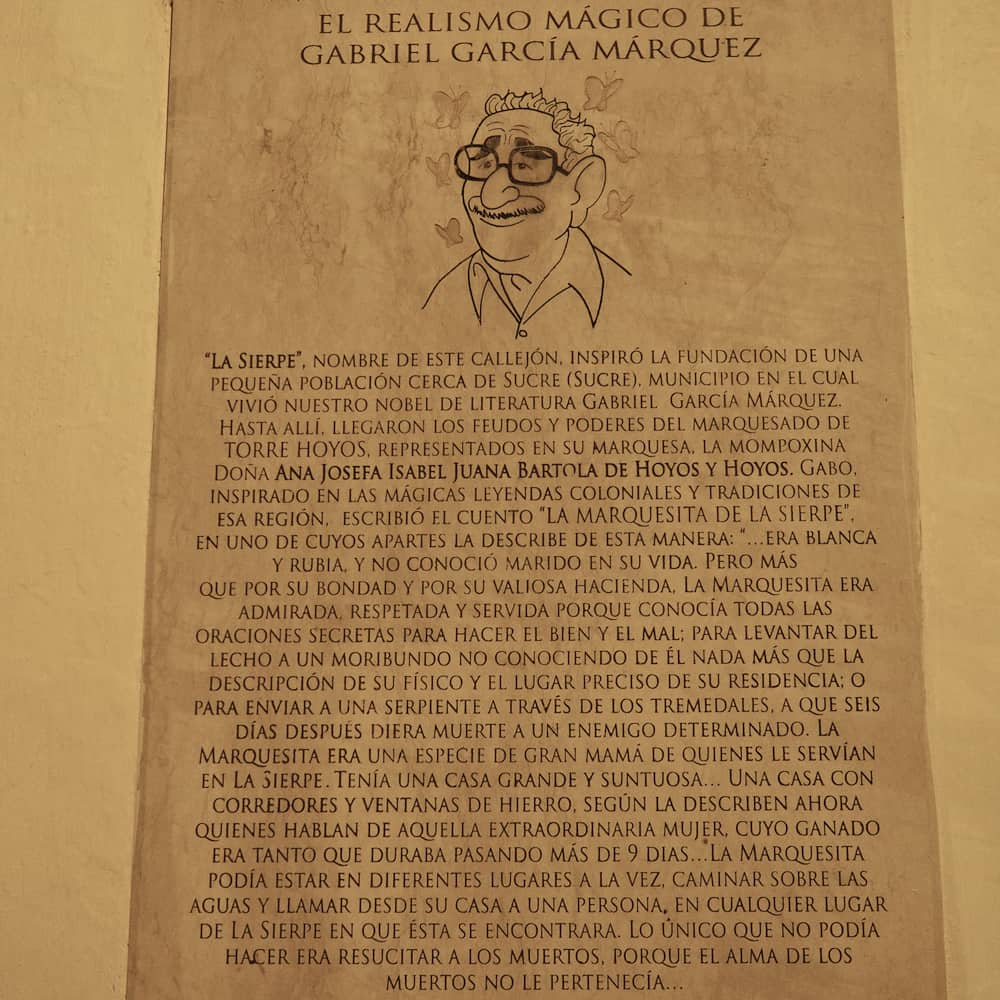 EL REALISMO MÁGICO DE
GABRIEL GARCÍA MÁRQUEZ
"LA SIERPE", NOMBRE DE ESTE CALLEJÓN, INSPIRÓ LA FUNDACIÓN DE UNA
PEQUEÑA POBLACIÓN CERCA DE SUCRE (SUCRE), MUNICIPIO EN EL CUAL
VIVIÓ NUESTRO NOBEL DE LITERATURA GABRIEL GARCÍA MÁRQUEZ.
HASTA ALLÍ, LLEGARON LOS FEUDOS Y PODERES DEL MARQUESADO DE
TORRE HOYOS, REPRESENTADOS EN SU MARQUESA, LA MOMPOXINA
DOÑA ANA JOSEFA ISABEL JUANA BARTOLA DE HOYOS Y HOYOS. GABO,
INSPIRADO EN LAS MÁGICAS LEYENDAS COLONIALES Y TRADICIONES DE
ESA REGIÓN, ESCRIBIÓ EL CUENTO "LA MARQUESITA DE LA SIERPE",
EN UNO DE CUYOS APARTES LA DESCRIBE DE ESTA MANERA: "...ERA BLANCA
Y RUBIA, Y NO CONOCIÓ MARIDO EN SU VIDA. PERO MÁS
QUE POR SU BONDAD Y POR SU VALIOSA HACIENDA, LA MARQUESITA ERA
ADMIRADA, RESPETADA Y SERVIDA PORQUE CONOCÍA TODAS LAS
ORACIONES SECRETAS PARA HACER EL BIEN Y EL MAL; PARA LEVANTAR DEL
LECHO A UN MORIBUNDO NO CONOCIENDO DE ÉL NADA MÁS QUE LA
DESCRIPCIÓN DE SU FÍSICO Y EL LUGAR PRECISO DE SU RESIDENCIA; O
PARA ENVIAR A UNA SERPIENTE A TRAVÉS DE LOS TREMEDALES, A QUE SEIS
DÍAS DESPUÉS DIERA MUERTE A UN ENEMIGO DETERMINADO. LA
MARQUESITA ERA UNA ESPECIE DE GRAN MAMÁ DE QUIENES LE SERVÍAN
EN LA SIERPE. TENÍA UNA CASA GRANDE Y SUNTUOSA... UNA CASA CON
CORREDORES Y VENTANAS DE HIERRO, SEGÚN LA DESCRIBEN AHORA
QUIENES HABLAN DE AQUELLA EXTRAORDINARIA MUJER, CUYO GANADO
ERA TANTO QUE DURABA PASANDO MÁS DE 9 DIAS..."LA MARQUESITA
PODÍA ESTAR EN DIFERENTES LUGARES A LA VEZ, CAMINAR SOBRE LAS
AGUAS Y LLAMAR DESDE SU CASA A UNA PERSONA, EN CUALQUIER LUGAR
DE LA SIERPE EN QUE ÉSTA SE ENCONTRARA. LO ÚNICO QUE NO PODÍA
HACER ERA RESUCITAR A LOS MUERTOS, PORQUE EL ALMA DE LOS
MUERTOS NO LE PERTENECÍA...